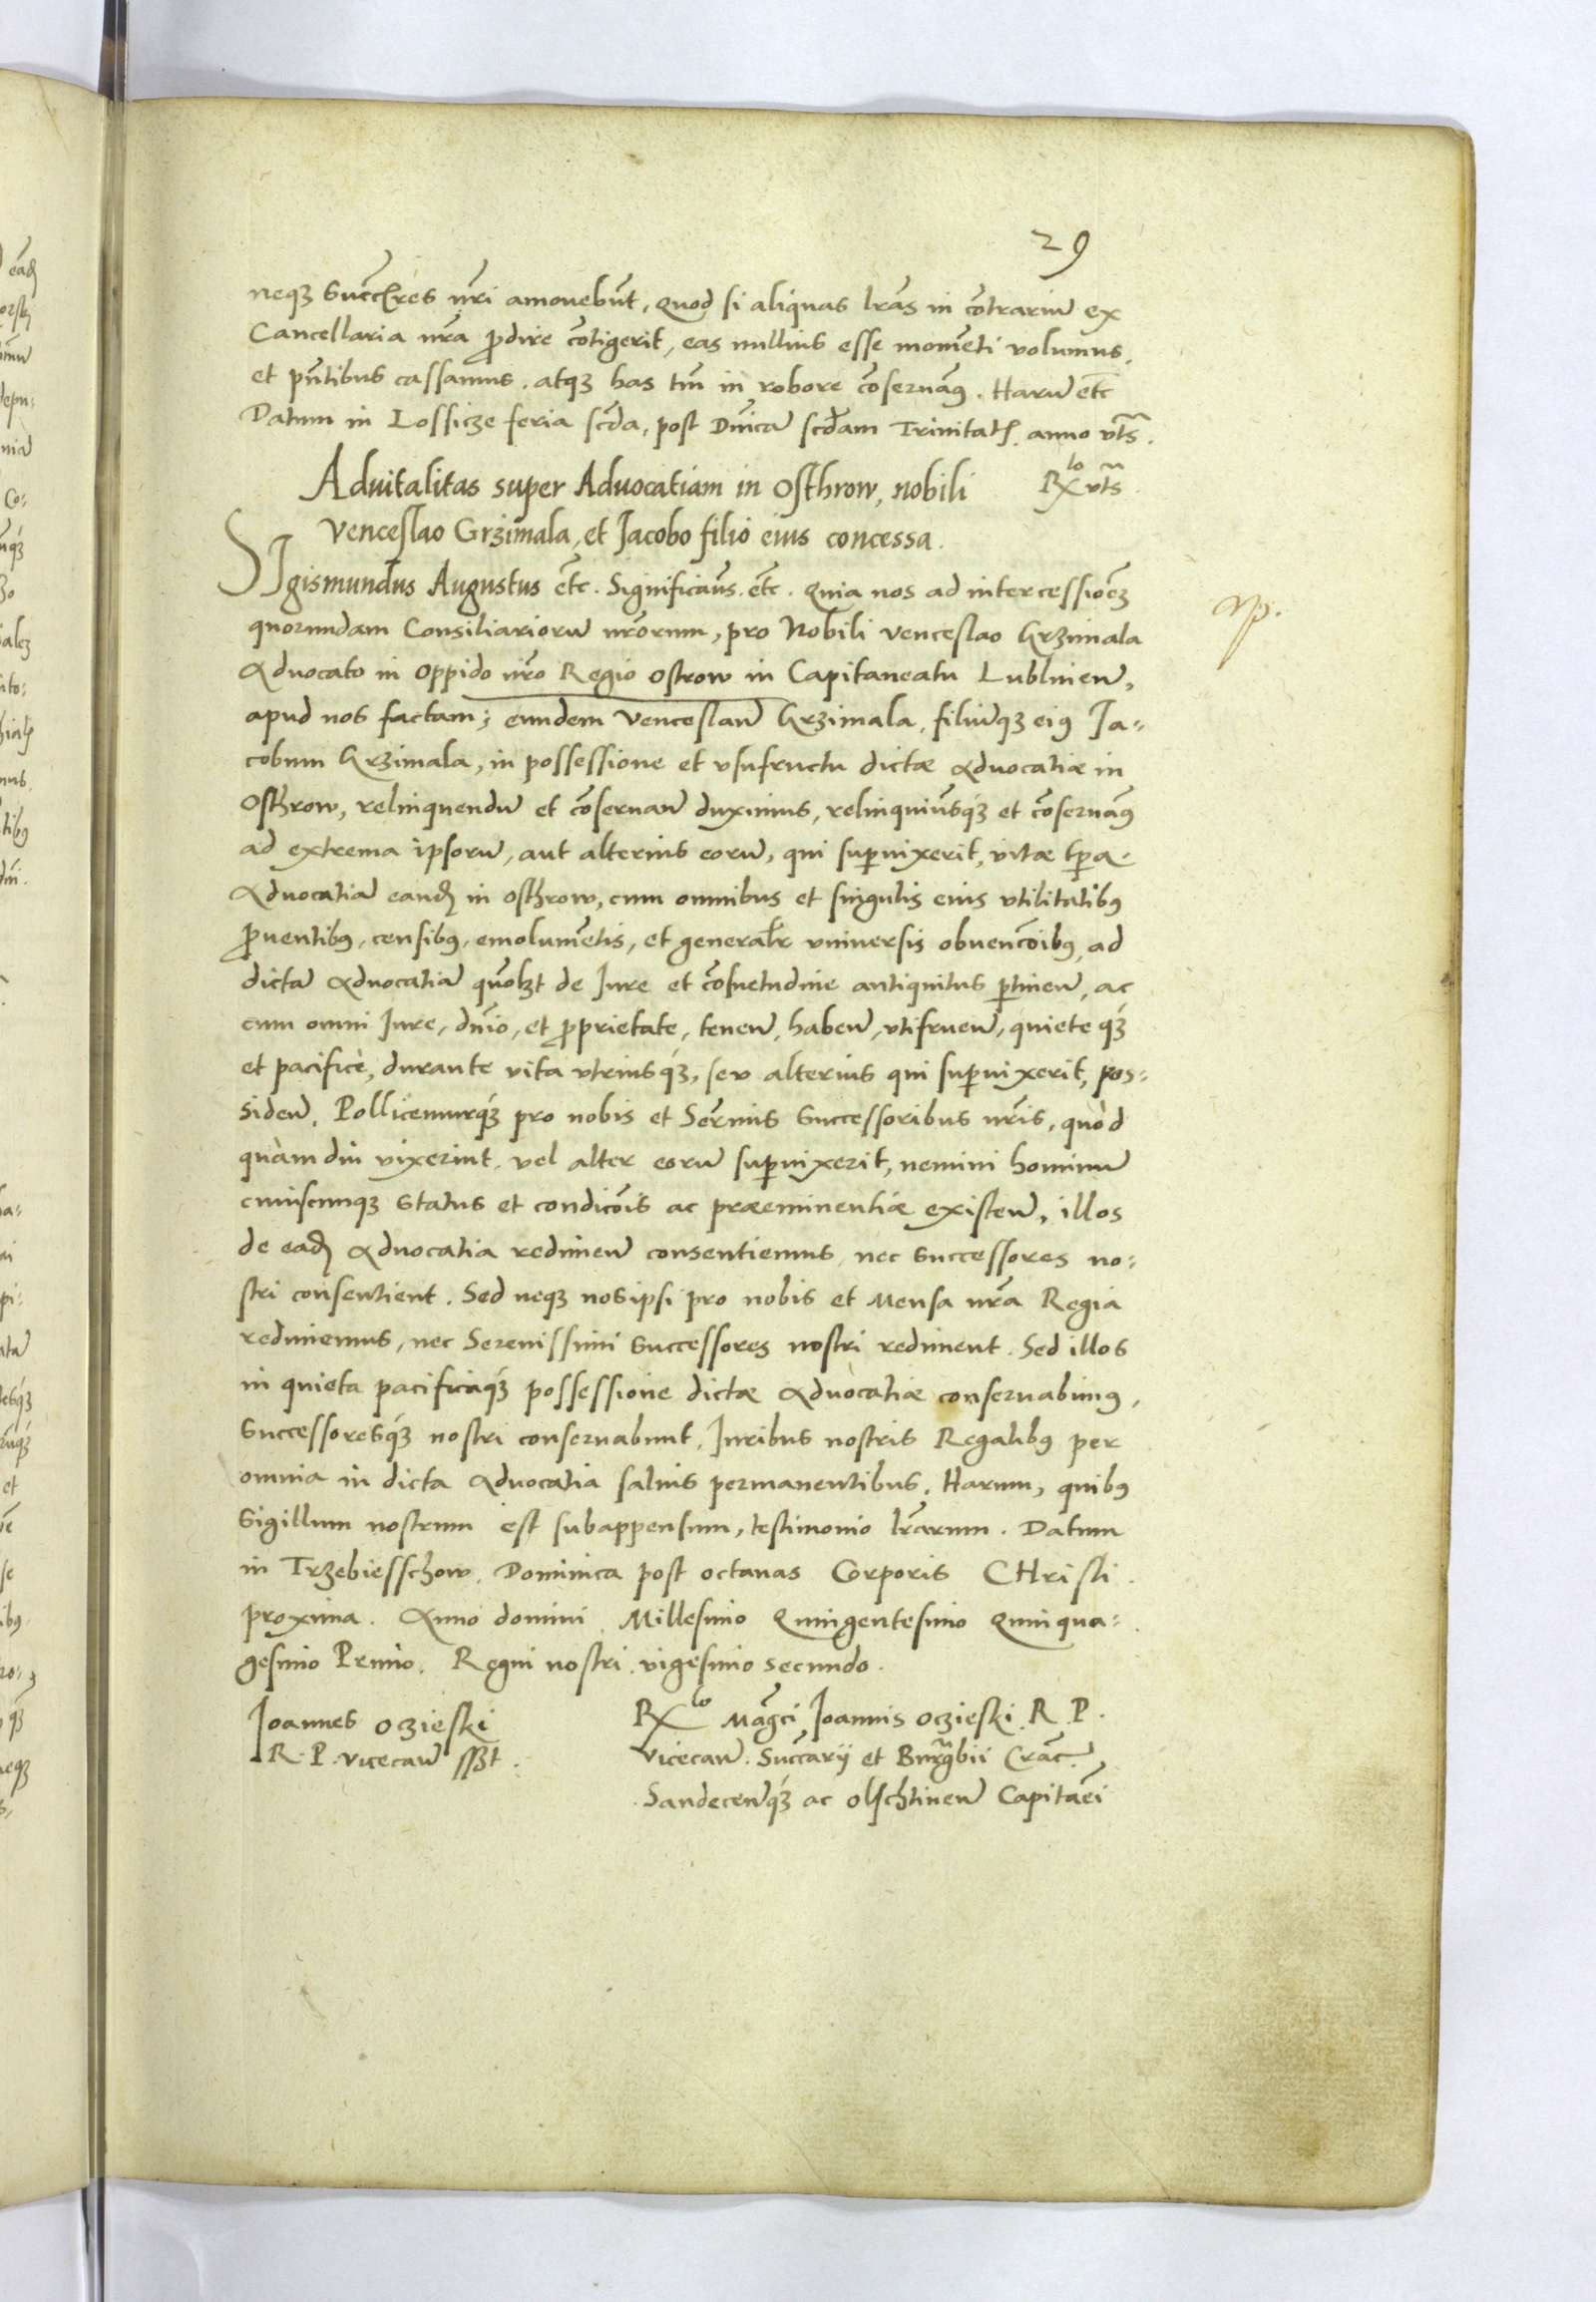 29
neqꝫ Succẽres nr̃i amouebũt, quod si aliquas lr̃as in cõtrariũ ex
Cancellaria nr̃a ꝓdire cõtigerit, eas nullius esse momẽti volumus,
et pñtibus cassamus. atqꝫ has tm̃ in robore cõseruamꝰ. Harũ etc̃
Datum in Lossicze feria scd̃a, post Dñicã scd̃am Trinitatꝭ anno vts̃.
Rx lo vts̃
Aduitalitas super Aduocatiam in Osthrow, nobili
Venceslao Grzimala, et Iacobo filio eius concessa.
SIgismundus Augustus etc̃. Significam̃s. etc̃. Quia nos ad intercessioẽꝫ
quorundam Consiliariorũ nr̃orum, pro Nobili Venceslao Grzimala
Aduocato in Oppido nr̃o Regio Ostrow in Capitaneatu Lublineñ,
np.
apud nos factam; eundem Venceslaũ Grzimala, filiũqꝫ eiꝰ Ia-
cobum Grzimala, in possessione et vsufructu dictæ Aduocatiæ in
Osthrow, relinquendũ et cõseruañ duximus, relinquimũsqꝫ et cõseruamꝰ
ad extrema ipsorũ, aut alterius eorũ, qui suꝑuixerit, vitæ tꝑa.
Aduocatiã eandꝭ in Osthrow, cum omnibus et singulis eius vtilitatibꝰ
ꝓuentibꝰ, censibꝰ, emolumẽtis, et generalr̃ vniuersis obuencõibꝰ, ad
dictã Aduocatiã quõlꝫt de Iure et cõsuetudine antiquitus ꝑtineñ, ac
cum omni Iure, dñio, et ꝓprietate, teneñ, habeñ, vtifrueñ, quiete qꝫ
et pacificè, durante vita vtriusqꝫ, seu alterius qui suꝑuixerit, pos-
sideñ. Pollicemurqꝫ pro nobis et Ser̃mis Successoribus nr̃is, quòd
quàm diu vixerint, vel alter eorũ suꝑuixerit, nemini hominũ
cuiuscunqꝫ Status et condicõis ac præeminentiæ existeñ, illos
de eadꝭ Aduocatia redimeñ consentiemus, nec Successores no-
stri consentient. Sed neqꝫ nosipsi pro nobis et Mensa nr̃a Regia
redimemus, nec Serenissimi Successores nostri rediment. Sed illos
in quieta pacificaqꝫ possessione dictæ Aduocatiæ conseruabimꝰ,
Successoresqꝫ nostri conseruabunt. Iuribus nostris Regalibꝰ per
omnia in dicta Aduocatia saluis permanentibus. Harum, quibꝰ
Sigillum nostrum est subappensum, testimonio lr̃arum. Datum
in Trzebiesschow. Dominica post octauas Corporis CHristi
proxima. Anno domini Millesimo Quingentesimo Quinqua-
gesimo Primo. Regni nostri vigesimo secundo.
Joannes Oczieski
R. P. Vicecañ sszt.
Rx lo Mag̃ci Joannis Oczieski R. P.
Vicecañ. Succ̃arij et Burg̃bii Crac̃.
Sandeceñqꝫ ac Olschtineñ Capitãei